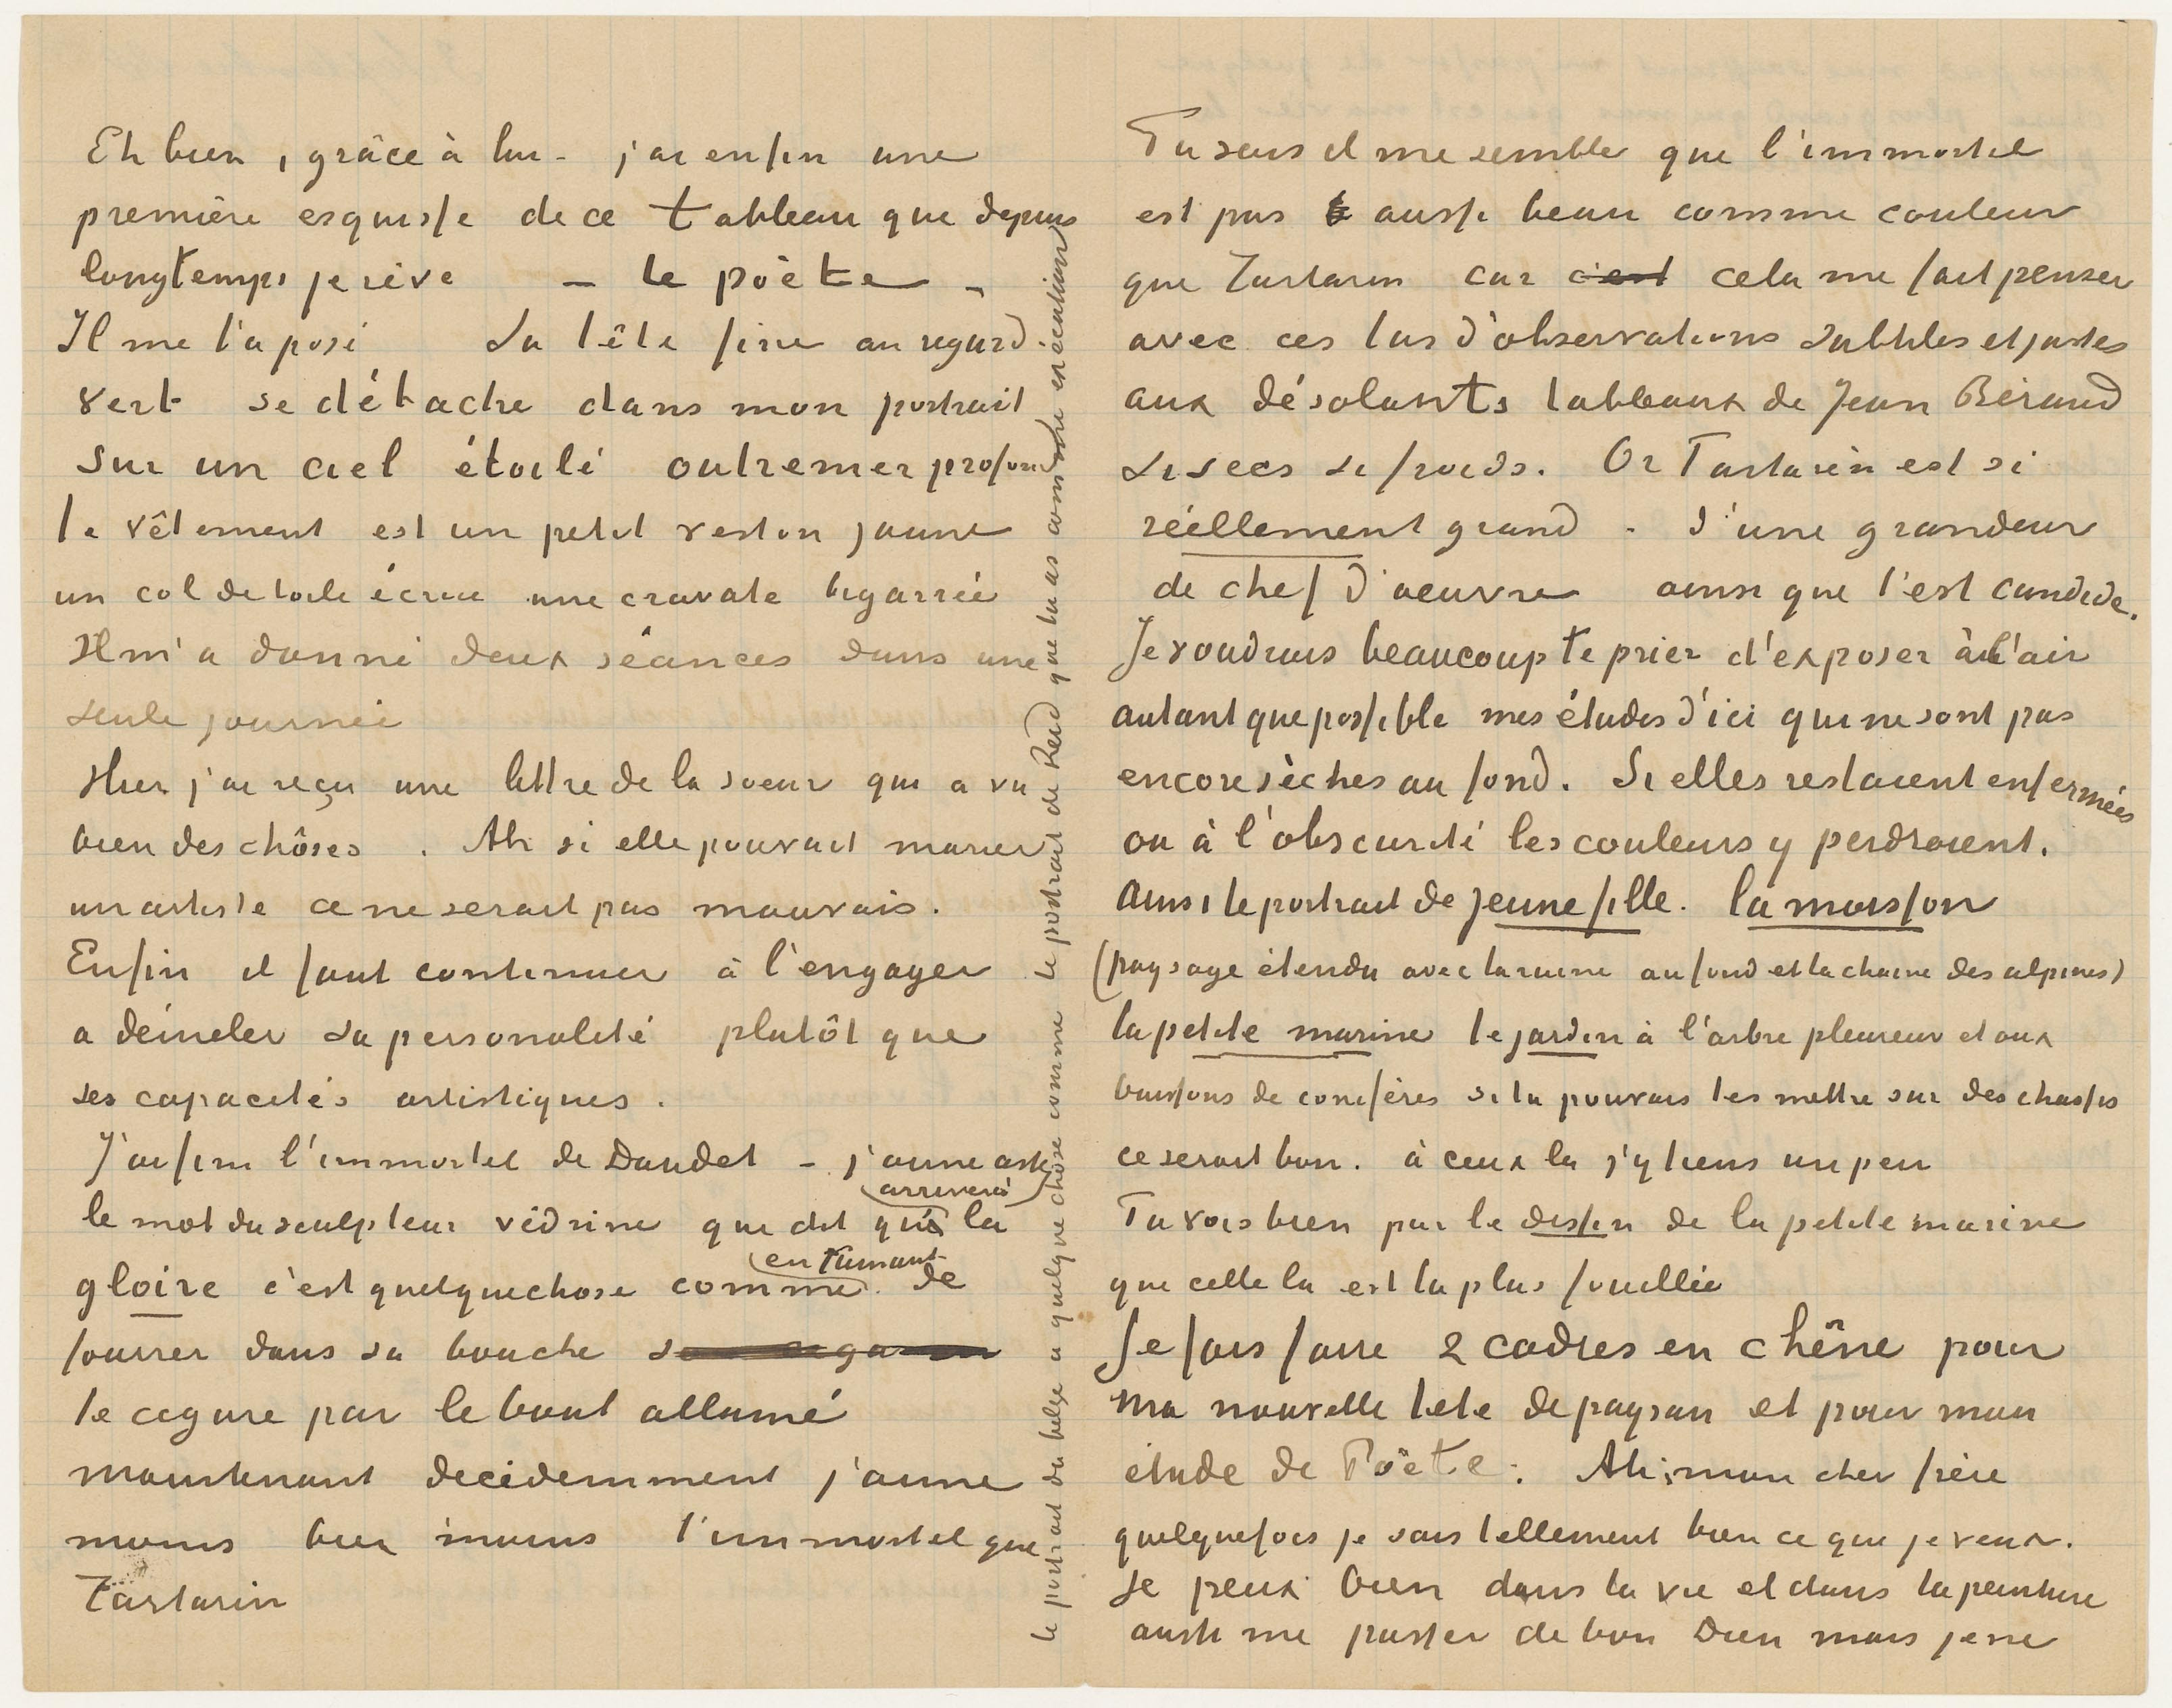 Eh bien, grâce à lui – j'ai enfin une
première esquisse de ce tableau que depuis
longtemps je rêve – le poète –
Il me l'a posé Sa tête fine au regard
vert se détache dans mon portrait
sur un ciel étoilé outremer profond
le vêtement est un petit veston jaune
un col de toile écrue une cravate bigarrée
Il m'a donné deux séances dans une
seule journée
Hier j'ai reçu une lettre de la soeur qui a vu
bien des chôses. Ah si elle pouvait marier
un artiste ce ne serait pas mauvais.
Enfin il faut continuer à l'engager
a démeler sa personalité plutôt que
ses capacités artistiques.
J'ai fini l'immortel de Daudet – j'aime assez
le mot du sculpteur védrine qui dit qu'à arriver à la
gloire c'est quelquechose comme en fumant de
fourrer dans sa bouche
le cigare par le bout allumé
maintenant decidemment j'aime
moins bien moins l'immortel que
Tartarin
le portrait du belge a quelque chose comme le portrait de Reid que tu as comme exécution
Tu sais il me semble que l'immortel
est pas aussi beau comme couleur
que Tartarin car c'est cela me fait penser
avec ces tas d'observations subtiles et justes
aux désolants tableaux de Jean Béraud
si secs si froids. Or Tartarin est si
réellement grand – d'une grandeur
de chef d'oeuvre ainsi que l'est candide.
Je voudrais beaucoup te prier d'exposer à l'air
autant que possible mes études d'ici qui ne sont pas
encore sèches au fond. Si elles restaient enfermées
ou à l'obscurité les couleurs y perdraient.
ainsi le portrait de jeune fille. la moisson
(paysage étendu avec la ruine au fond et la chaine des alpines)
la petite marine le jardin à l'arbre pleureur et aux
buissons de conifères si tu pouvais les mettre sur des chassis
ce serait bon. à ceux la j'y tiens un peu
Tu vois bien par le dessin de la petite marine
que celle la est la plus fouillée
Je fais faire 2 cadres en chêne pour
ma nouvelle tete de paysan et pour mon
étude de Poëte. Ah, mon cher frère
quelquefois je sais tellement bien ce que je veux.
Je peux bien dans la vie et dans la peinture
aussi me passer de bon Dieu mais je ne